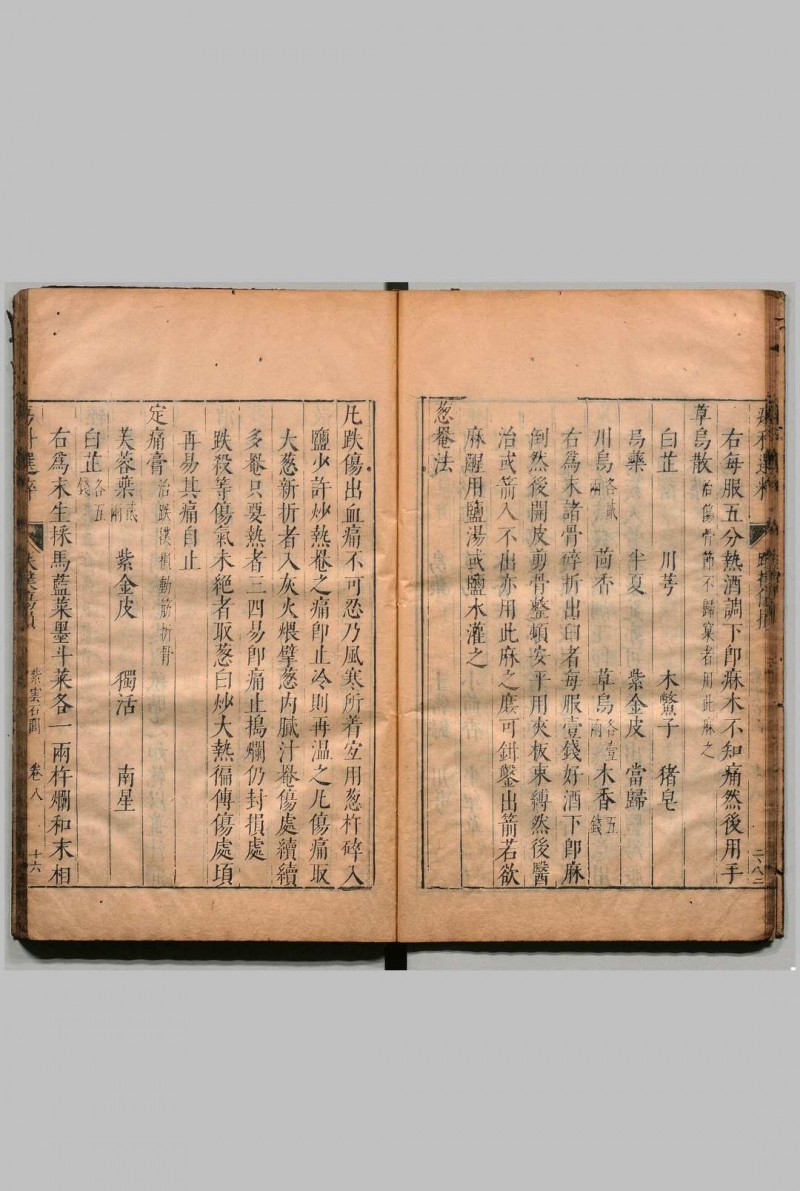 右每服五分熱酒調下卽麻木不知痛然後用手
草烏散治傷骨節不歸窠者用此麻之
白芷 川芎 木鱉子 猪皂
烏藥 半夏 紫金皮 當歸
川烏各貳兩 茴香 草烏各壹兩 木香五錢
右爲末諸骨碎折出臼者每服壹錢好酒下卽麻
倒然後開皮剪骨整頓安平用夾板束縛然後醫
治或箭入不出亦用此麻之庶可鉗鑿出箭若欲
麻醒用鹽湯或鹽水灌之
葱罨法
凡跌傷出血痛不可忍乃風寒所着宜用葱杵碎入
鹽少許炒熱罨之痛卽止冷則再温之凡傷痛取
大葱新折者入灰火煨擘葱内腻汁罨傷處續續
多罨只要熱者三四易卽痛止搗爛仍封損處
跌殺等傷氣未絶者取葱白炒大熱徧傅傷處頃
再易其痛自止
定痛膏治跌撲損動筋折骨
芙蓉葉貳兩 紫金皮 獨活 南星
白芷各五錢
右爲末生採馬藍菜墨斗菜各一兩杵爛和末相
卷八 十六